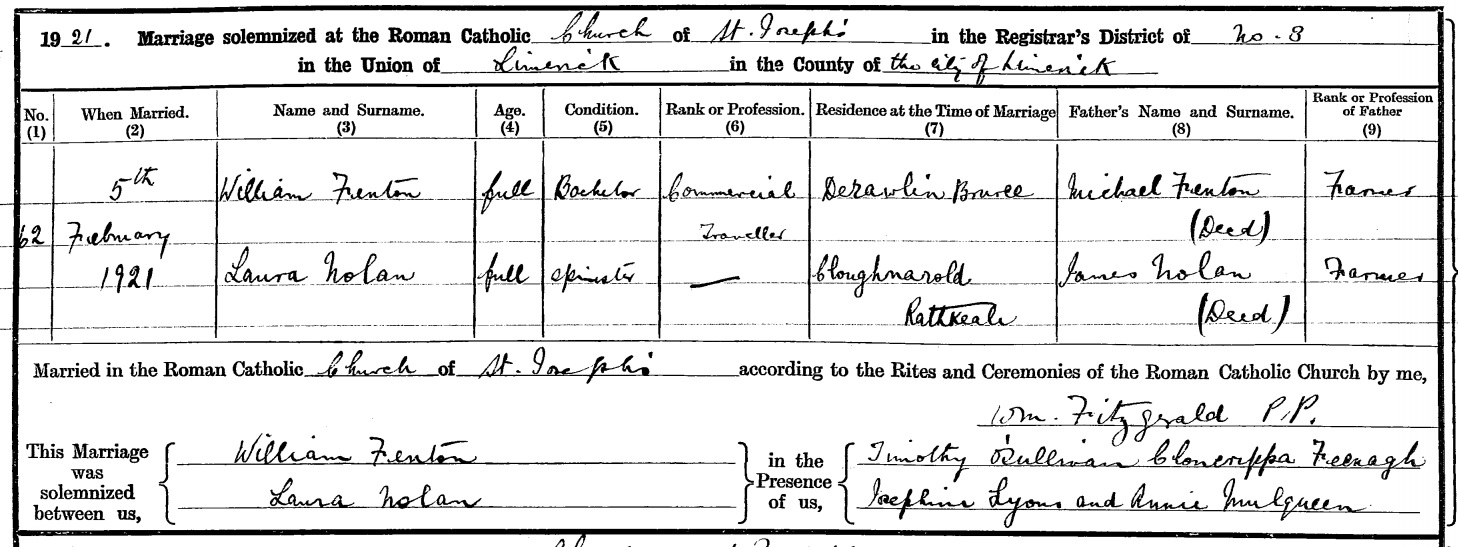 1921. Marriage solemnized at the Roman Catholic Church of St. Joseph's in the Registrar's District of No. 3
in the Union of Limerick in the County of the city of Limerick
No. (1) When Married. (2) Name and Surname. (3) Age. (4) Condition. (5) Rank or Profession. (6) Residence at the Time of Marriage (7) Father's Name and Surname. (8) Rank or Profession of Father (9)
5th William Fenton full Bachelor Commercial Derawlin Bruree Michael Fenton Farmer
62 February Traveller (Deed)
1921 Laura Nolan full spinster — Cloughnarold James Nolan Farmer
Rathkeale (Deed)
Married in the Roman Catholic Church of St. Joseph's according to the Rites and Ceremonies of the Roman Catholic Church by me,
Wm. Fitzgerald P.P.
This Marriage was solemnized between us, William Fenton in the Presence of us, Timothy O'Sullivan Cloncrippa Feenagh
Laura Nolan Josephine Lyons and Annie Mulqueen